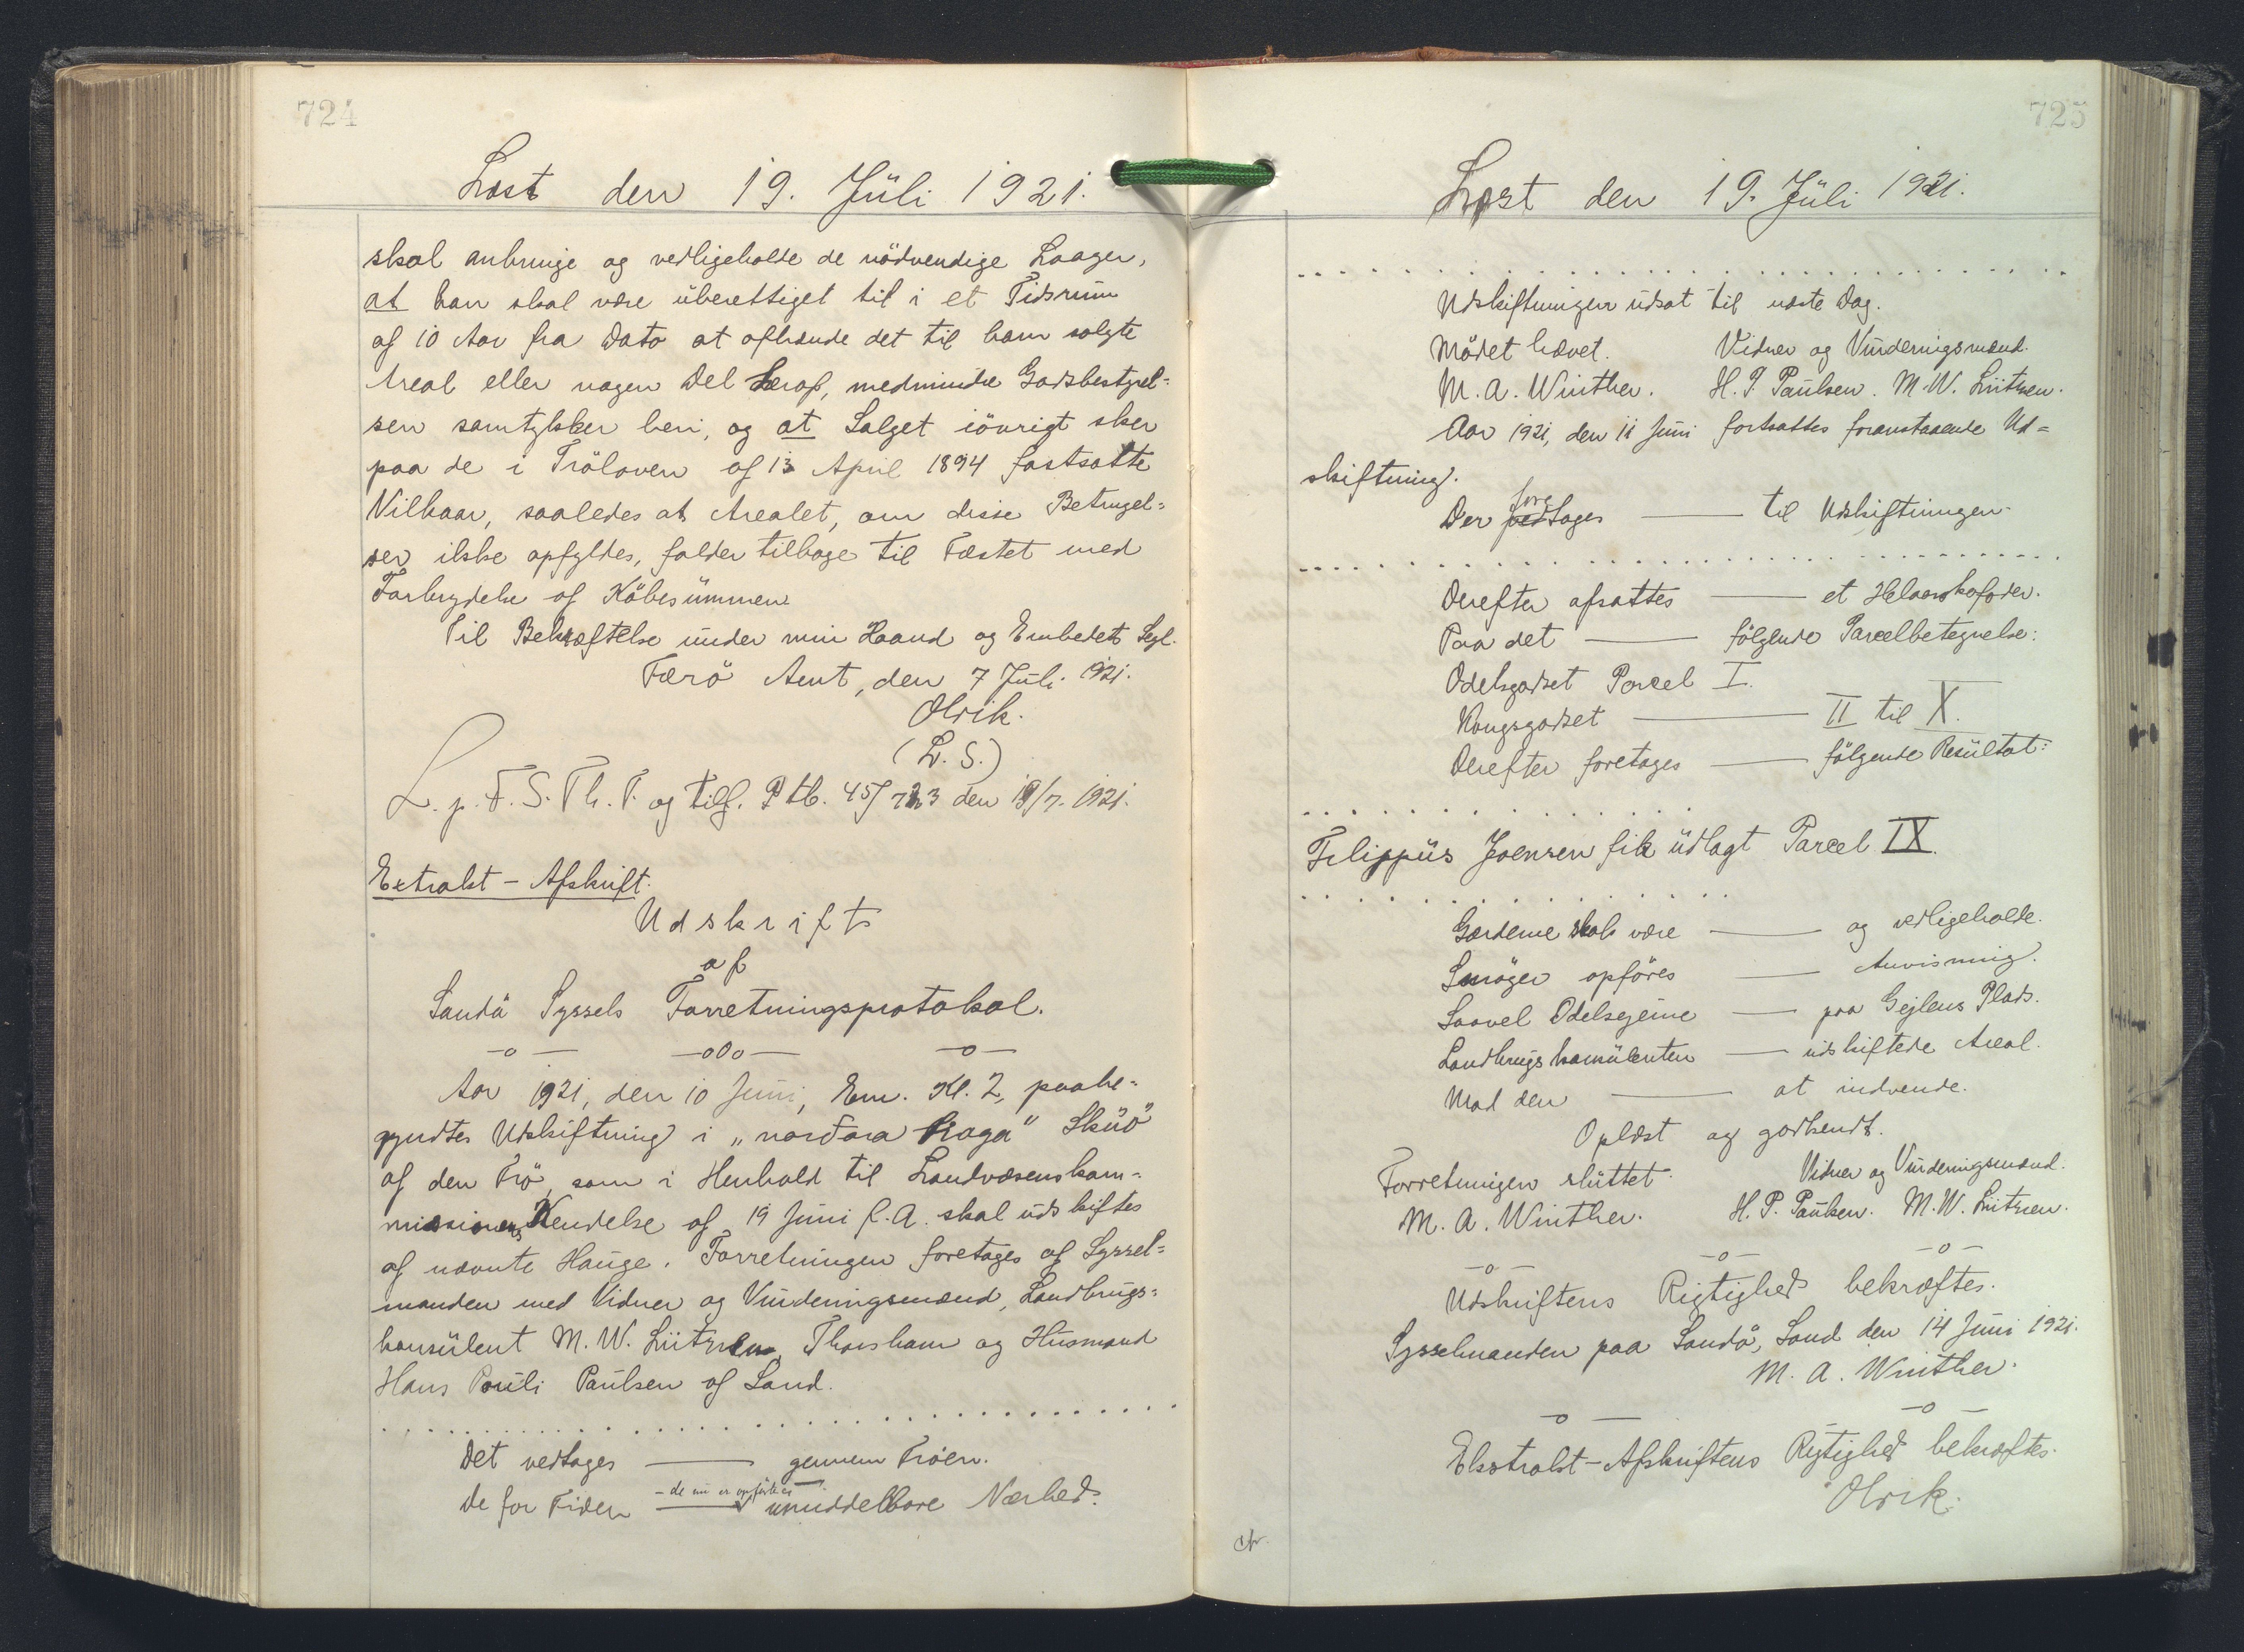 724
Læst den 19. Juli 1921.
skal anbringe og vedligeholde de nödvendige Laager,
at han skal være uberettiget til i et Tidsrum
af 10 Aar fra Dato at afhænde det til ham solgte
Areal eller nogen Del heraf, medmindre Godsbestyrel=
sen samtykker heri, og at Salget iövrigt sker
paa de i Tröloven af 13 April 1894 fastsatte
Vilkaar, saaledes at Arealet, om disse Betingel=
ser ikke opfyldes, falder tilbage til Fæstet med
Forbrydelse af Köbesummen.
Til Bekræftelse under min Haand og Embedets Segl.
Færö Amt, den 7 Juli 1921.
Olrik.
(L. S.)
L. p. F. S. Th. T. og tilf. Ptb. 45/723 den 19/7. 1921.
Extrakt - Afskrift.
Udskrift
af
Sandö Syssels Forretningsprotokol.
—o— —oOo— —o—
Aar 1921, den 10 Juni, Em. Kl. 2, paabe=
gyndtes Udskiftning i „norðara Haga" Skuö
af den Trö, som i Henhold til Landvæsenskom=
missionens Kendelse af 19 Juni f. A. skal udskiftes
af nævnte Hauge. Forretningen foretages af Syssel=
manden med Vidner og Vurderingsmænd, Landbrugs=
konsulent M. W. Lützen, Thorshavn og Husmand
Hans Pauli Paulsen af Sand.
. . . . . . . . . . . . . . . . . . . .
Det vedtages —— gennem Tröen.
- de nu er opförte i
De for Tiden —— umiddelbare Nærhed.
725
Læst den 19. Juli 1921.
. . . . . . . . . . . . . . . . . . . .
Udskiftningen udsat til næste Dag.
Mödet hævet. Vidner og Vurderingsmænd.
M. A. Winther. H. P. Paulsen. M. W. Lützen.
Aar 1921, den 11 Juni fortsattes foranstaaende Ud=
skiftning.
fore
Der vedtages —— til Udskiftningen.
. . . . . . . . . . . . . . . . . . . .
Derefter afsattes —— et Helaarskofoder.
Paa det —— fölgende Parcelbetegnelse:
Odelsgodset Parcel I.
Kongsgodset —— II til X.
Derefter foretages —— fölgende Resultat:
. . . . . . . . . . . . . .
Filippus Joensen fik udlagt Parcel IX.
. . . . . . . . . . . . . .
Gærderne skal være —— og vedligeholde.
Smöger opföres —— Anvisning.
Saavel Odelsejerne —— paa Gejlens Plads.
Landbrugskonsulenten —— udskiftede Areal.
Mod den —— at indvende.
Oplæst og godkendt.
Forretningen sluttet. Vidner og Vurderingsmænd.
M. A. Winther. H. P. Paulsen. M. W. Lützen.
—o— —o— —o—
Udskriftens Rigtighed bekræftes.
Sysselmanden paa Sandö, Sand den 14 Juni 1921.
M. A. Winther.
—o— —o—
Ekstrakt-Afskriftens Rigtighed bekræftes.
Olrik.